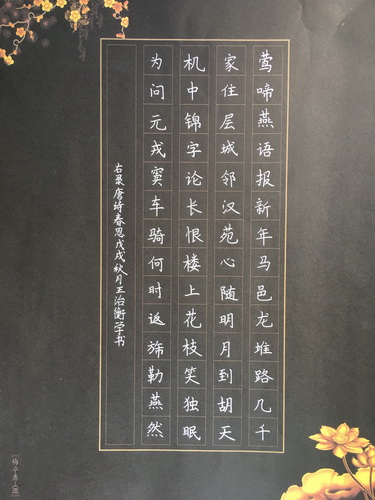 莺啼燕语报新年马邑龙堆路几千
家住层城邻汉苑心随明月到胡天
机中锦字论长恨楼上花枝笑独眠
为问元戎窦车骑何时返旆勒燕然
右录唐诗春思戊戌秋月王治衡学书